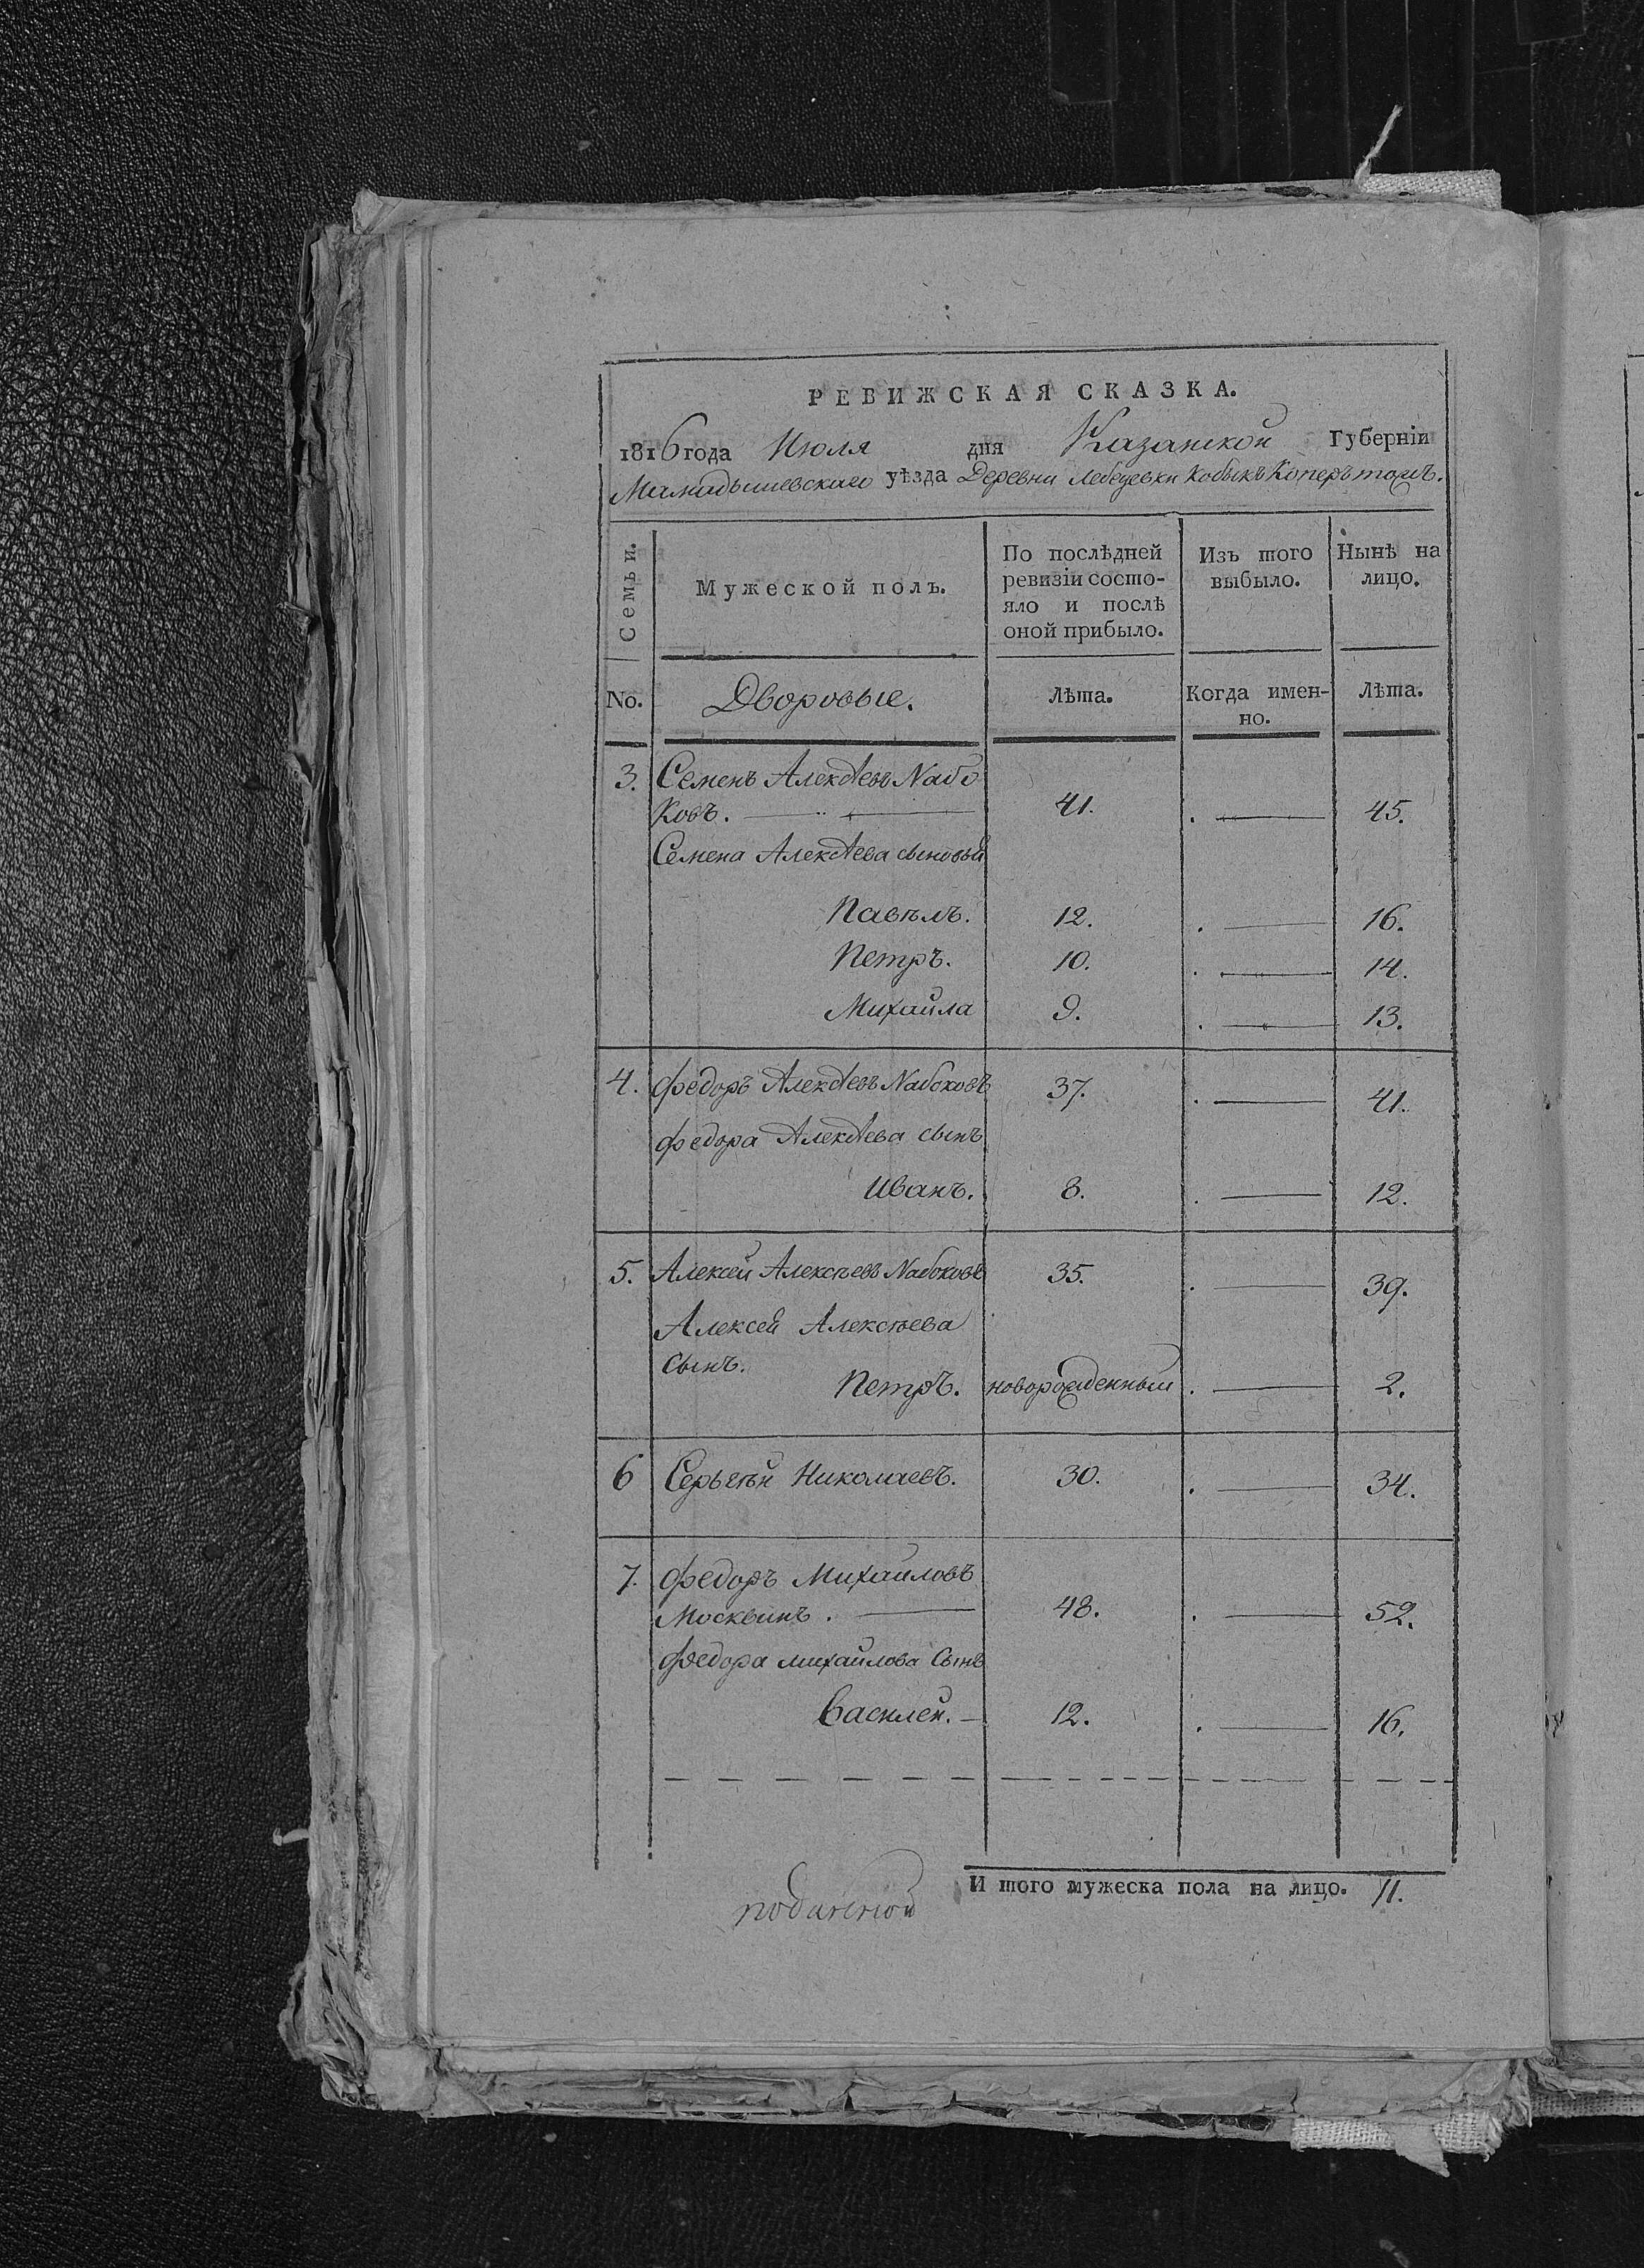 РЕВИЖСКАЯ СКАЗКА.
1816 года Июля дня Казанской Губерніи
Мамадышевскаго уѣзда Деревни Лебедевки Кобыкъ Коперъ тожъ.
Семьи.
Мужеской полъ.
По послѣдней ревизіи состо-
яло и послѣ
оной прибыло.
Изъ того
выбыло.
Нынѣ на
лицо.
No.
Дворовые.
Лѣта.
Когда имен-
но.
Лѣта.
3. Семенъ Алексѣевъ Набо
ковъ. 41. 45.
Семена Алексѣева сыновья
Павѣлъ. 12. 16.
Петръ. 10. 14.
Михайла 9. 13.
4. Федоръ Алексѣевъ Набоковъ 37. 41.
Федора Алексѣева сынъ
Иванъ. 8. 12.
5. Алексей Алексѣевъ Набоковъ 35. 39.
Алексей Алексѣева
сынъ.
Петръ. новорожденный 2.
6 Серьгѣй Николаевъ. 30. 34.
7. Федоръ Михайловъ
Москвинъ. 48. 52.
Федора Михайлова Сынъ
Василей. 12. 16.
И того мужеска пола на лицо. 11.